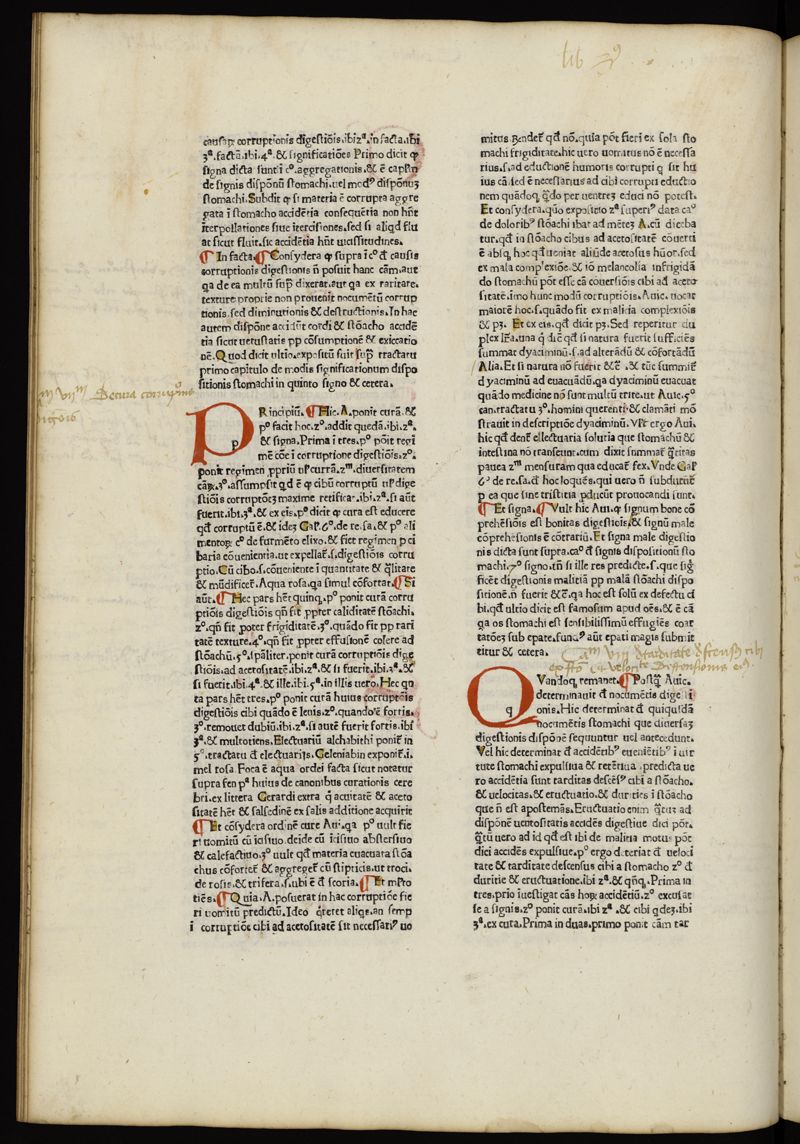 causaꝝ corruptionis digestiōis.ibi zª.in facta.ibi
3ª.factā.ibi.4ª.& significatiōes Primo dicit ꝙ
signa dicta sunt ī cº.aggregationis.& ē
de signis dispōnū stomachi.uel
stomachi.Subdit ꝙ si materia ē corrupta aggre
gata ī stomacho accidētia consequētia non hn̄t
iterpollationes siue itercisiones.sed si aliqd̄ flu
at sicut fluit.sic accidētia hn̄t uicissitudines.
¶ In facta.¶ Consydera ꝙ supra ī cº đ causis
corruptionis digestionis n̄ posuit hanc cām.aut
ga de ea multū sup̄ dixerat.aut ga ex raritate.
texture proprie non prouenit nocumētū corrup
tionis.sed diminutionis & destructionis. In hac
autem dispōne accidūt cordi & stōacho accidē
tia sicut uetustatis pp cōsumptionē & exiccatio
nē.Quod dicit ultio.expositū fuit sup̄ tractatu
primo capitulo de modis significationum dispo
sitionis stomachi in quinto signo & cetera.
PRincipiū.¶ Hic.A.ponit curā.&
pº facit hoc.zº.addit quedā.ibi.zª.
& signa.Prima ī tres.pº pōit regi
mē cōe ī corruptione digestiōis.zº.
ponit regimen ꝓpriū zm.diuersitatem
3º.assumpsit qd̄ ē ꝙ cibū corruptū dige
stiōis maxime rectifica.ibi.zª.si aūt
fuerit.ibi.3ª.& ex eis.pº dicit ꝙ cura est educere
qd̄ corruptū ē.& idez Gal̄.6º.de re.sa.& pº ali
mentoꝝ cº de furmēto elixo.& fiet regimen p ci
baria cōuenientia.ut expellat̄.s.digestiōis corru
ptio.Cū cibo.s.conueniente ī quantitate & q̄litate
& mūdificet̄.Aqua rosa.ga simul cōfortat.¶ Si
aūt.¶ Hec pars hēt quinq.pº ponit curā corru
ptiōis digestiōis qn̄ fit ꝓpter caliditatē stōachi.
zº.qn̄ fit poter frigiditatē.3º.quādo fit pp rari
tatē texture.4º.qn̄ fit ꝓpter effusionē colere ad
stōachū.5º.ponit curā corruptiōis dige
stiōis.ad acetositatē.ibi.zª.& si fuerit.ibi.3ª.&
si fuerit.ibi.4ª.& ille.ibi.5ª.in illis uero.Hec qn
ta pars hēt tres.pº ponit curā huius corruptōis
digestiōis cibi quādo ē lenis.zº.quando ē fortis.
3º.remouet dubiū.ibi.zª.si autē fuerit fortis.ibi
3ª.& multotiens.Electuariū alchabithi ponit̄ in
5º.tractatu đ electuariis.Geleniabin exponit̄.i.
mel rosa.Foca ē aqua ordei facta sicut notatur
supra fen pª huius de canonibus curationis cere
bri.ex littera Gerardi extra ꝗ acuitatē & aceto
sitatē hēt & salsedinē ex salis additione acquirit
¶ Et cōsydera ordinē cure Aui.ga pº uult fie
ri uomitū cū icisiuo.deide cū icisiuo abstersiuo
& calefactiuo.3º uult qd̄ materia euacuata stōa
chus cōfortet̄ & aggreget̄ cū stipticis.ut troci.
de rosis.& trifera.s.ubi ē đ scoria.¶ Et mℓto
tiēs.¶ Quia.A.posuerat in hac corruptiōe fie
ri uomitū predictū.Ideo q̄reret aliqs.an semp
ī corruptiōe cibi ad acetositatē sit necessariꝰ uo
mitus qd̄ nō.quia pōt fieri ex sola sto
machi frigiditate.hic uero uomitus nō ē necessa
rius.s.ad eductionē humoris corrupti ꝗ sit hu
ius cā.sed ē necessarius ad cibi corrupti eductio
nem quādoq q̄do per uentrez educi nō potest.
Et consydera.quō expositio zª superiꝰ data caº
de doloribꝰ stōachi ibat ad mētez A.cū diceba
tur.qd̄ in stōacho cibus ad acetositatē cōuerti
ē absq hoc qd̄ ueniat aliūde acetosus hūor.sed
ex mala complexiōe.& iō melancolia infrigidā
do stomachū pōt esse cā cōuersiōis cibi ad aceto
sitatē.imo hunc modū corruptiōis.Auic. uocat
maiorē hoc.s.quādo fit ex malitia complexiōis
& pz. Et ex eis.qd̄ dicit pz.Sed reperitur du
plex lr̄a.una ꝗ dicit qd̄ si natura fuerit sufficiēs
summat̄ dyaciminū.s.ad alterādū & cōfortādū
Alia.Et si natura nō fuerit &c̄ .& tūc summit̄
dyaciminū ad euacuādū.ga dyaciminū euacuat
quādo medicine nō sunt multū trite.ut Auic.5º
can.tractatu 3º.homini querenti.& clamāti mō
strauit in descriptiōe dyaciminū. ergo Aui.
hic qd̄ dent̄ ellectuaria solutia que stomachū &
intestina nō transeunt.cum dixit summat̄ q̄titas
pauca zm mensuram qua educat̄ fex.Vnde Gal̄
6º de re.sa.đ hoc loquēs.qui uero n̄ subducūt̄
p ea que sine tristitia ꝓducūt prouocandi sunt.
¶ Et signa.¶ Vult hic Aui.ꝙ signum bone cō
prehēsiōis est bonitas digestiōis.& signū male
cōprehēsionis ē cōtrariū.Et signa male digestio
nis dicta sunt supra.caº đ signis dispositionū sto
machi.7º signo.tn̄ si ille res predicte.s.que sig
ficēt digestionis malitiā pp malā stōachi dispo
sitionē.n̄ fuerit &c̄.ga hoc est solū ex defectu ci
bi.qd̄ ultio dicit est famosum apud oēs.& ē cā
ga os stomachi est sensibilissimū effugiēs coar
tatōez sub epate.fundꝰ aūt epati magis submit
titur & cetera.
QVandoq remanet.¶ Postq̄ Auic.
determinauit đ nocumētis dige i
onis.Hic determinat đ quiqudā
nocumētis stomachi que diuersaz
digestionis dispōnē sequuntur uel antecedunt.
Vel hic determinat đ accidētibꝰ eueniētibꝰ ī uir
tute stomachi expulsiua & retētiua .predicta ue
ro accidētia sunt tarditas descēsꝰ cibi a stōacho.
& uelocitas.& eructuatio.& durities ī stōacho
que n̄ est apostemas.Eructuatio enim q̄tū ad
dispōnē uentositatis accidēs digestiue dici pōt.
q̄tū uero ad id qd̄ est ibi de malitia motus pōt
dici accidēs expulsiue.pº ergo determinat đ ueloci
tate & tarditate descensus cibi a stomacho zº đ
duritie & eructuatione.ibi zª.& qn̄q.Prima in
tres.prio iuestigat cās hoꝝ accidētiū.zº excusat
se a signis.zº ponit curā.ibi zª .& cibi qdez.ibi
3ª.ex cura.Prima in duas.primo ponit cām tar